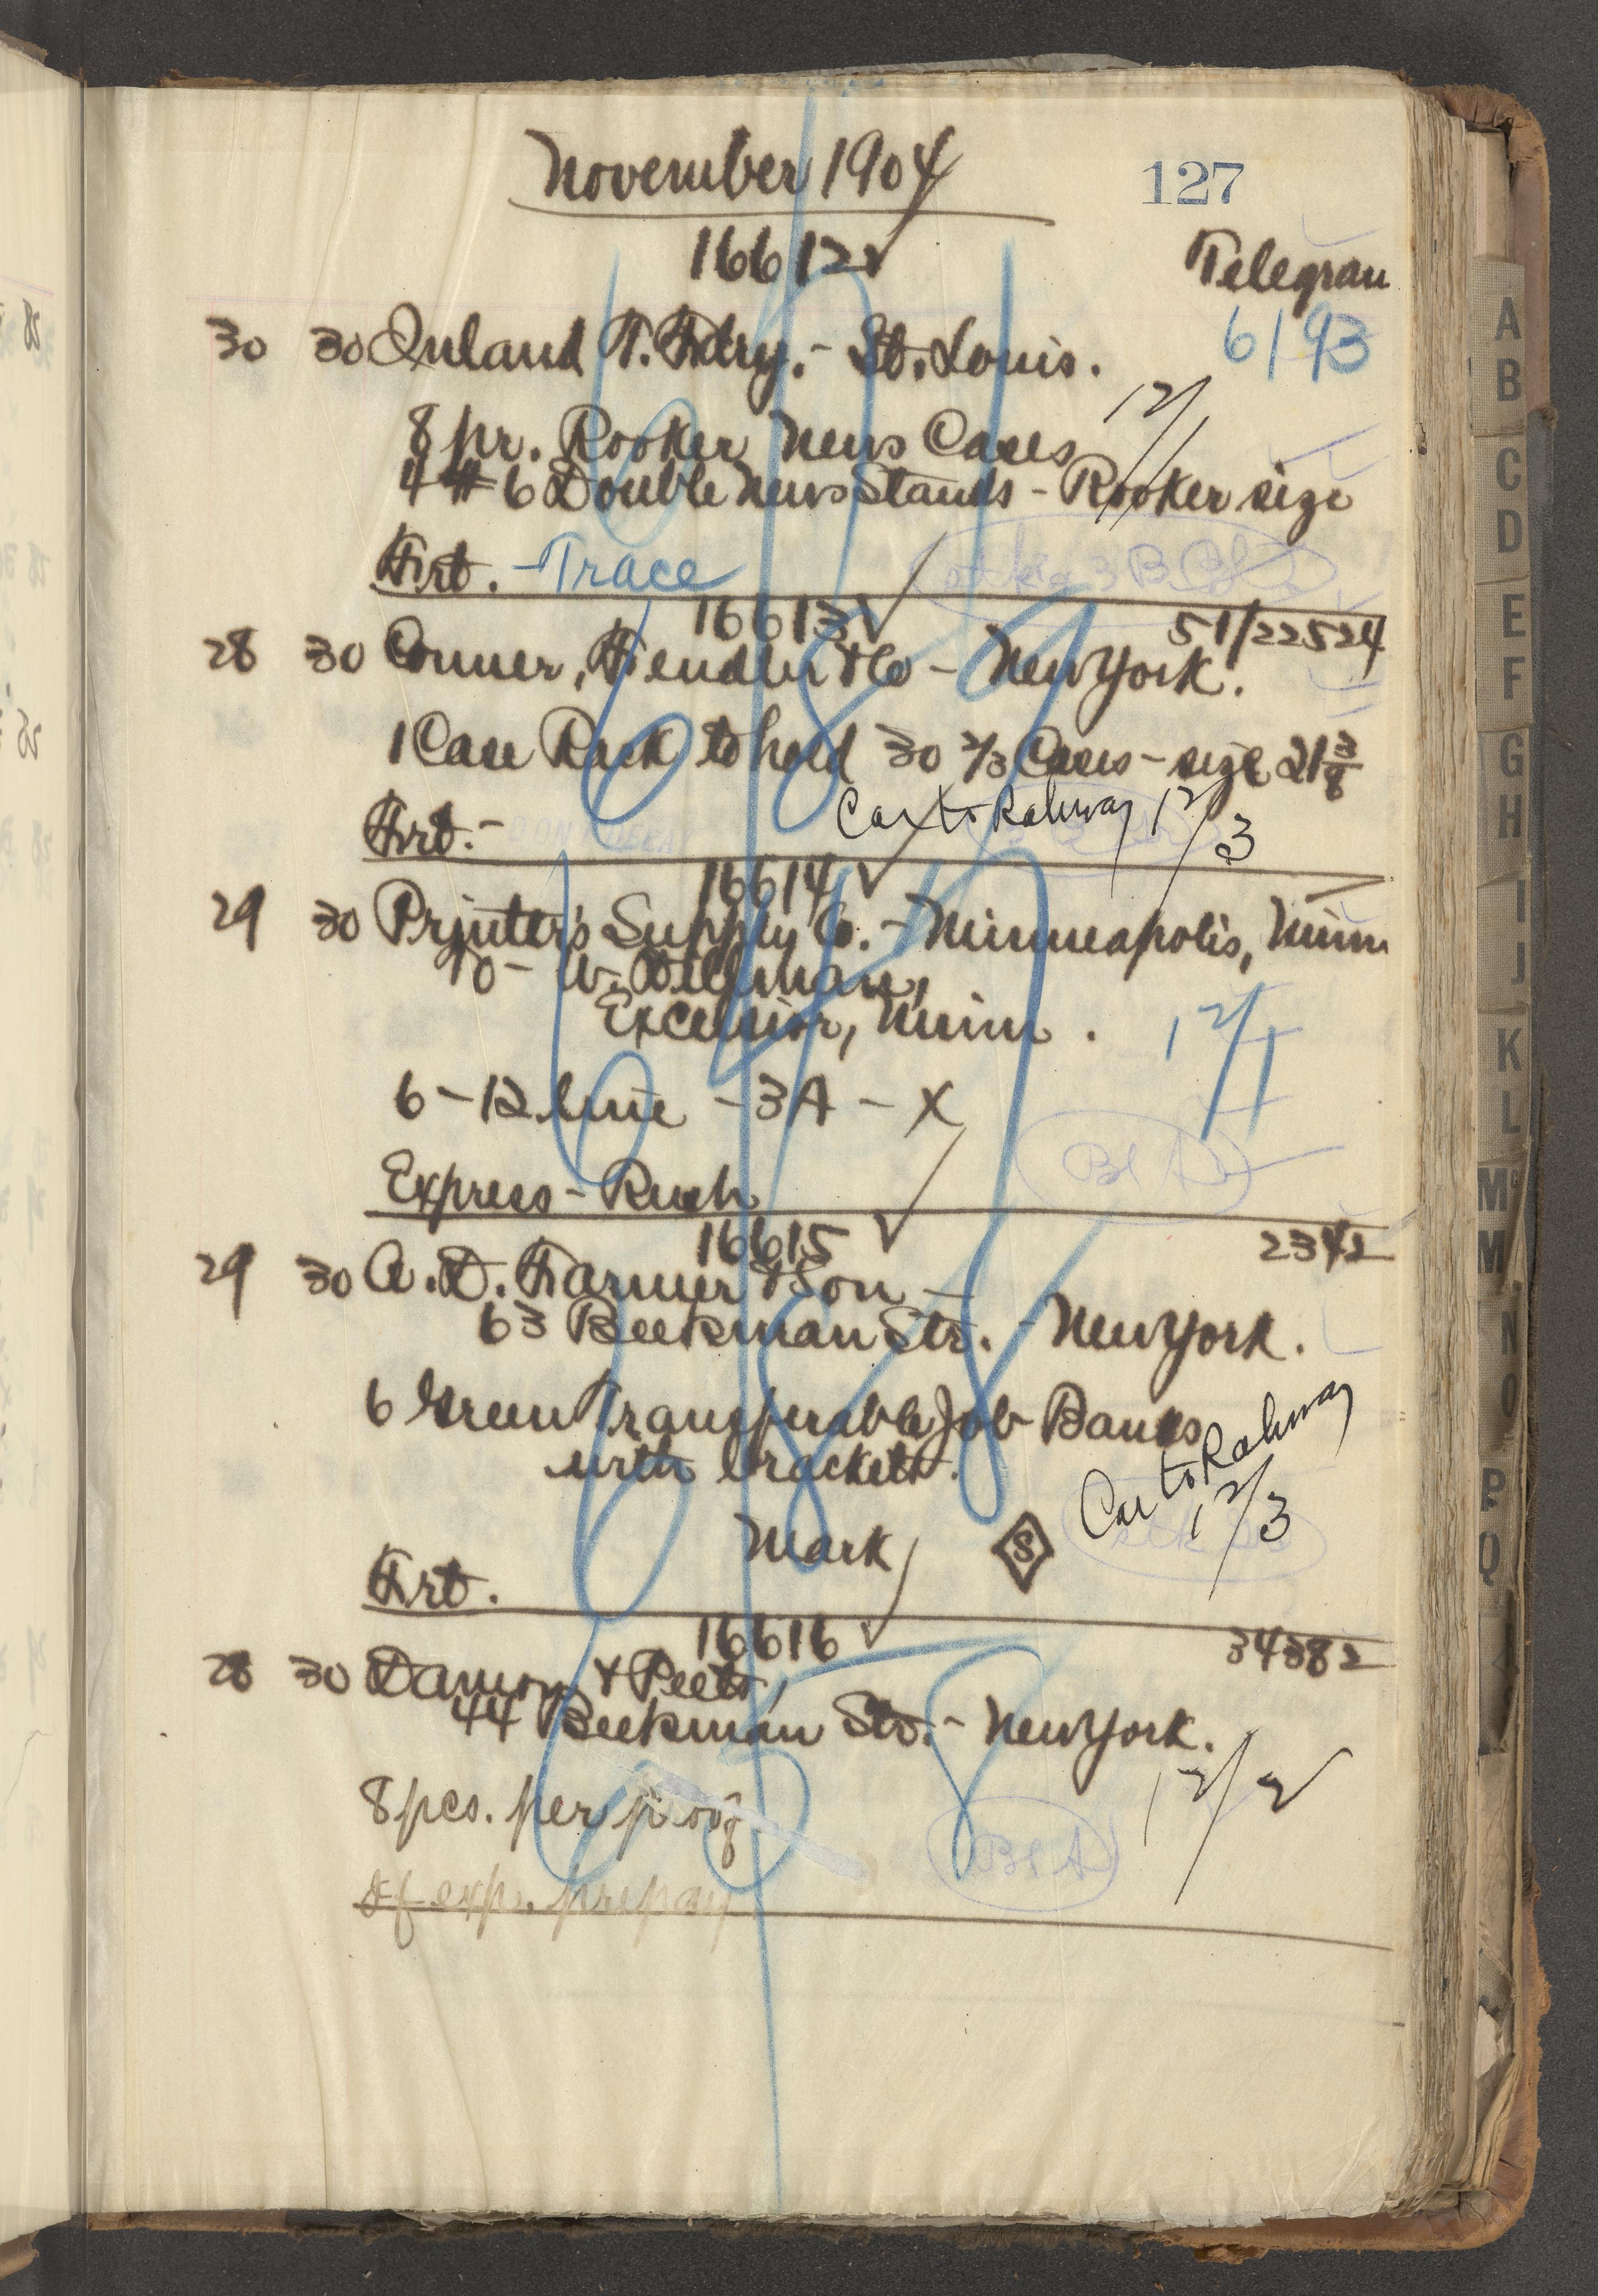 November 1904
127
16612
Telegram
30 30 Inland T. Fdry. - St. Louis.
6193
8 pr. Rooker News Cases
12/1
4 # 6 Double News Stands - Rooker size
Frt. - Trace
16613
51/22524
28 30 Conner, Fendler & Co - New York.
1 Case Rack to hold 30 2/3 Cases - size 21 3/8
Frt. -
Car to Rahway 12/3
16614
29 30 Printer's Supply Co. - Minneapolis, Minn
Excelsior, Minn.
12/1
6 - 12 line - 3A - X
Bl A
Express - Rush
16615
2342
29 30 A. D. Farmer & Son -
63 Beekman Str. - New York.
6 Green Transferable Job Banks
with brackets.
Car to Rahway
12/3
Mark S
Frt.
16616
34382
28 30 Damon & Peets,
44 Beekman Str. - New York.
8 pcs. per proof
12/2
Bl A
If exp. prepay
A
B
C
D
E
F
G
H
I
J
K
L
Mc
M
N
O
P
Q